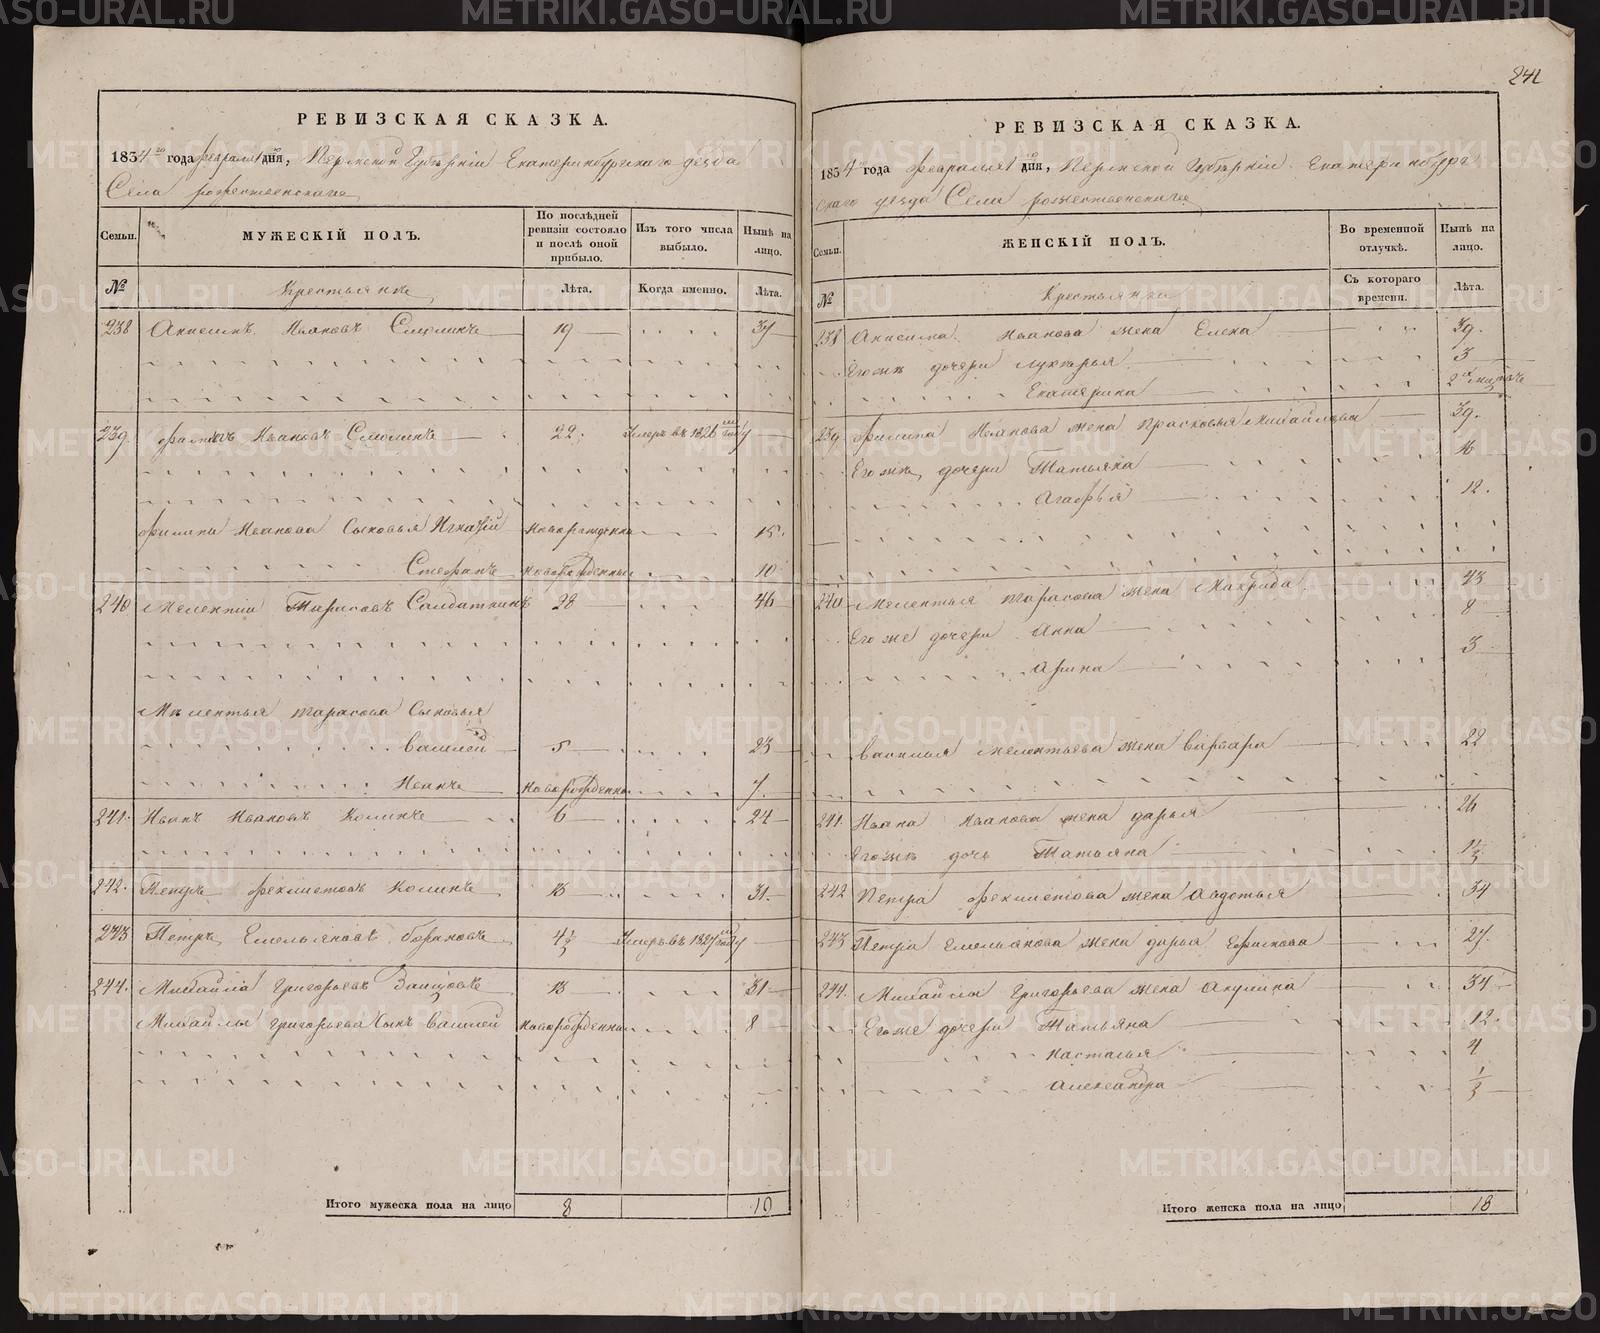 242
РЕВИЗСКАЯ СКАЗКА.
1834го года февраля 1 дня, Пермской Губернии Екатеринбургскаго уезда
Села рожественскаго
Семьи. МУЖЕСКІЙ ПОЛЪ. По послѣдней ревизіи состояло и послѣ оной прибыло. Изъ того числа выбыло. Нынѣ на лицо.
№ Крестьяне Лѣта. Когда именно. Лѣта.
238 Анисимъ Ивановъ Смолинъ 19 37
239. Филипъ Ивановъ Смолинъ 22. Умеръ въ 1826м году
Филипа Иванова Сыновья Игнатій Новорожденны 15.
Стефанъ Новорожденные 10
240 Мелентій Тарасовъ Солдаткинъ 28 46
Мелентья Тарасова Сыновья
Василей 5 23
Иванъ Новорожденны 7.
241. Иванъ Ивановъ Колинъ 6 24
242. Петръ Феклистовъ Колинъ 13 31.
243 Петръ Емельяновъ 4½ Умеръ въ 1827м году
244. Михайла Григорьевъ Зайцовъ 13 31
Михайлы Григорьева Сынъ Василей новорожденны 8
Итого мужеска пола на лицо 8 10
РЕВИЗСКАЯ СКАЗКА.
1834го года февраля 1 дня, Пермской Губерніи Екатеринбург
скаго уезда Села рожественскаго
Семьи. ЖЕНСКІЙ ПОЛЪ. Во временной отлучкѣ. Нынѣ на лицо.
№ Крестьянки Съ котораго времени. Лѣта.
238 Анисима Иванова жена Елена 39.
Его же дочери Лукерья 3
Екатерина 2х
239 Филипа Иванова жена Прасковья Михайлова 39.
Его же дочери Татьяна 16
Агафья 12.
240 Мелентья Тарасова жена Маврида 43
Его же дочери Анна 8
Арина 3
василья Мелентьева жена варвара 22
241. Ивана Иванова жена дарья 26
Его же дочь Татьяна
242 Петра Феклистова жена Авдотья 34
243 Петра Емельянова жена дарья 27.
244. Михайлы Григорьева жена Акулина 34
Его же дочери Татьяна 12.
Настасья 4
Александра
Итого женска пола на лицо 18
METRIKI.GASO-URAL.RU